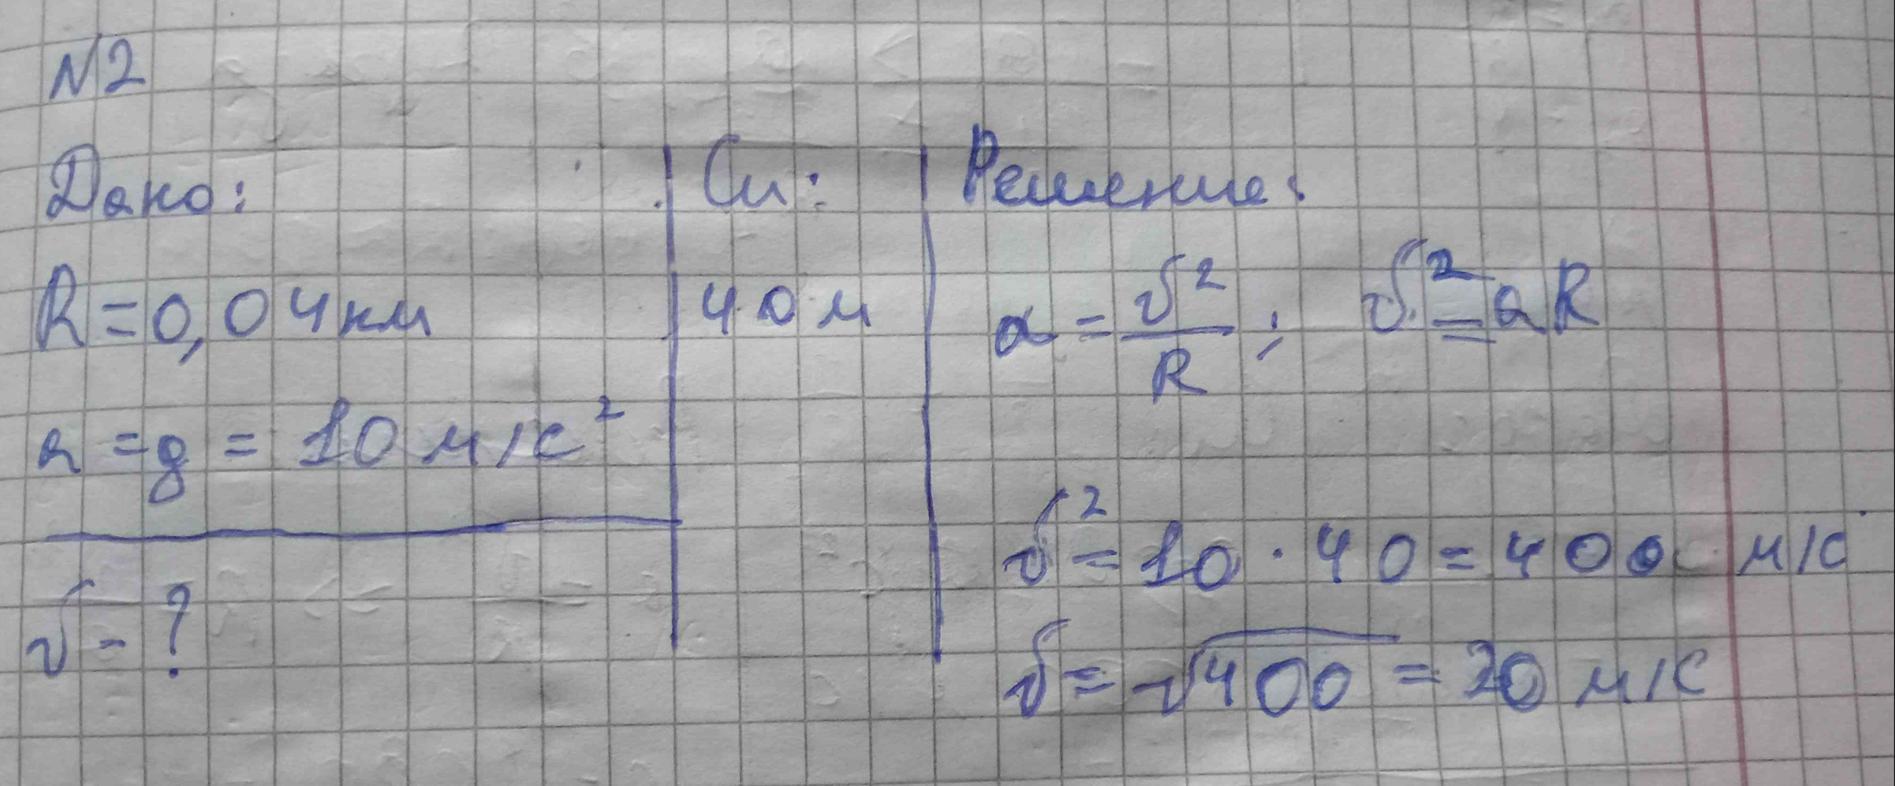 N2
Дано:
R = 0,04 км
a = g = 10 м/с²
v - ?
Си:
40 м
Решение:
a = v²/R ; v² = aR
v² = 10 · 40 = 400 м/с
v = √400 = 20 м/с